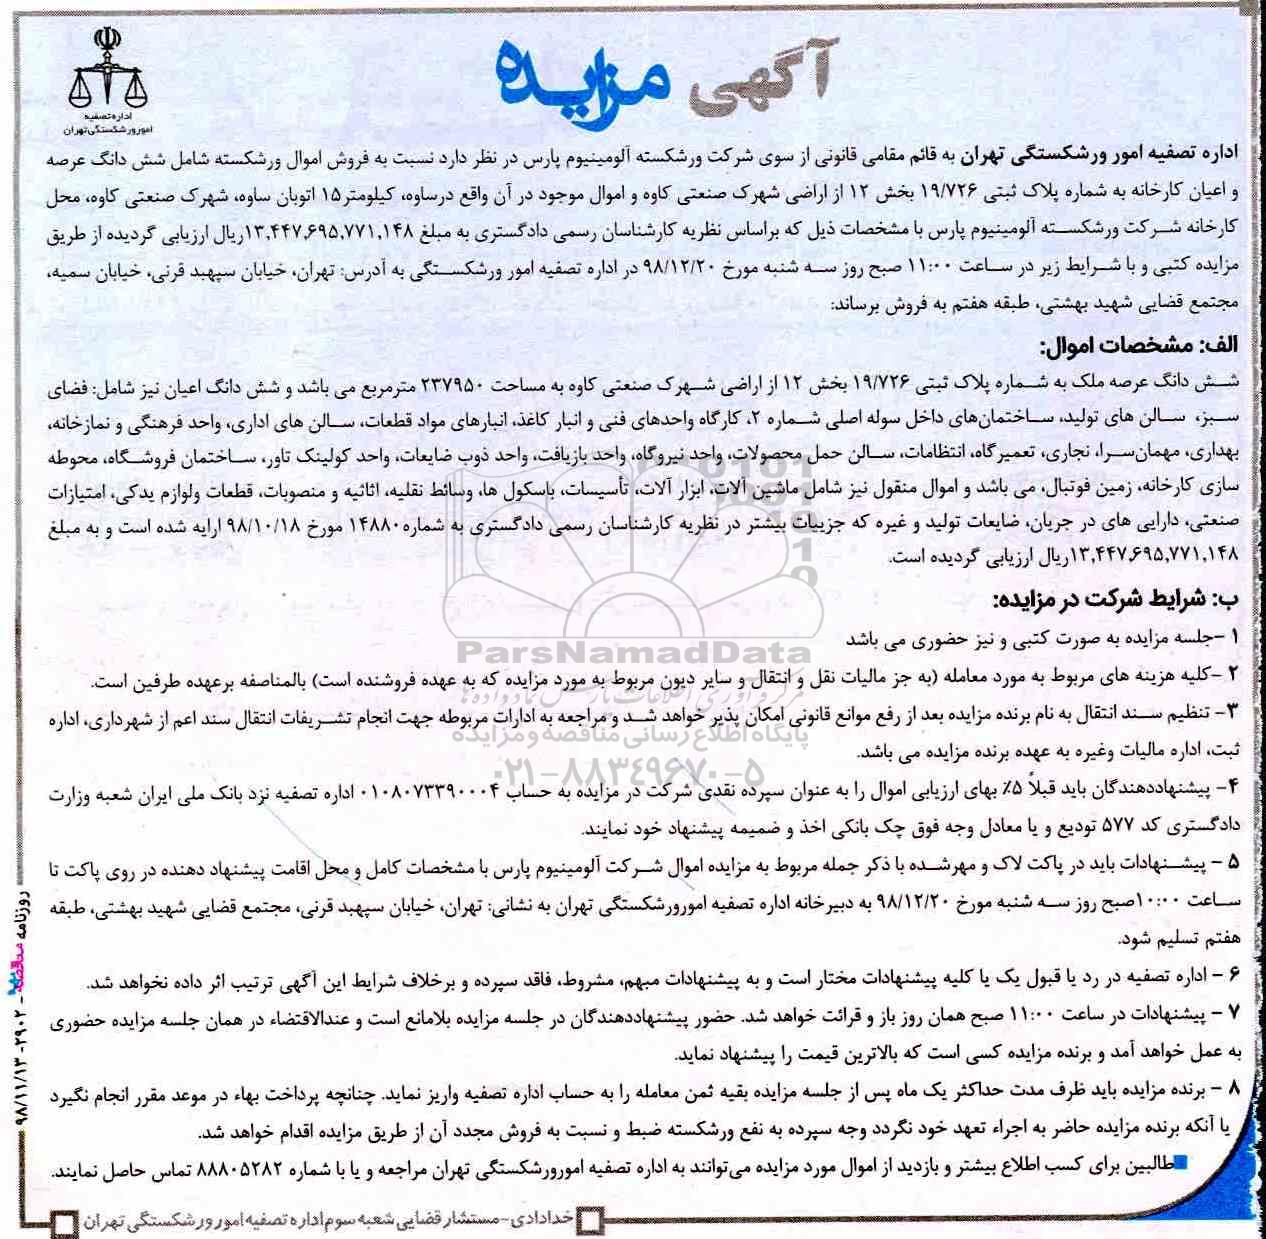 آگهی مزایده
اداره تصفیه
امور ورشکستگی تهران
اداره تصفیه امور ورشکستگی تهران به قائم مقامی قانونی از سوی شرکت ورشکسته آلومینیوم پارس در نظر دارد نسبت به فروش اموال ورشکسته شامل شش دانگ عرصه
و اعیان کارخانه به شماره پلاک ثبتی ۱۹/۷۲۶ بخش ۱۲ از اراضی شهرک صنعتی کاوه و اموال موجود در آن واقع درساوه، کیلومتر۱۵ اتوبان ساوه، شهرک صنعتی کاوه، محل
کارخانه شرکت ورشکسته آلومینیوم پارس با مشخصات ذیل که براساس نظریه کارشناسان رسمی دادگستری به مبلغ ۱۳,۴۴۷,۶۹۵,۷۷۱,۱۴۸ریال ارزیابی گردیده از طریق
مزایده کتبی و با شرایط زیر در ساعت ۱۱:۰۰ صبح روز سه شنبه مورخ ۹۸/۱۲/۲۰ در اداره تصفیه امور ورشکستگی به آدرس: تهران، خیابان سپهبد قرنی، خیابان سمیه،
مجتمع قضایی شهید بهشتی، طبقه هفتم به فروش برساند:
الف: مشخصات اموال:
شش دانگ عرصه ملک به شماره پلاک ثبتی ۱۹/۷۲۶ بخش ۱۲ از اراضی شهرک صنعتی کاوه به مساحت ۲۳۷۹۵۰ مترمربع می باشد و شش دانگ اعیان نیز شامل: فضای
سبز، سالن های تولید، ساختمان‌های داخل سوله اصلی شماره ۲، کارگاه واحدهای فنی و انبار کاغذ، انبارهای مواد قطعات، سالن های اداری، واحد فرهنگی و نمازخانه،
بهداری، مهمان‌سرا، نجاری، تعمیرگاه، انتظامات، سالن حمل محصولات، واحد نیروگاه، واحد بازیافت، واحد ذوب ضایعات، واحد کولینک تاور، ساختمان فروشگاه، محوطه
سازی کارخانه، زمین فوتبال، می باشد و اموال منقول نیز شامل ماشین آلات، ابزار آلات، تأسیسات، باسکول ها، وسائط نقلیه، اثاثیه و منصوبات، قطعات ولوازم یدکی، امتیازات
صنعتی، دارایی های در جریان، ضایعات تولید و غیره که جزییات بیشتر در نظریه کارشناسان رسمی دادگستری به شماره۱۴۸۸۰ مورخ ۹۸/۱۰/۱۸ ارایه شده است و به مبلغ
۱۳,۴۴۷,۶۹۵,۷۷۱,۱۴۸ریال ارزیابی گردیده است.
ب: شرایط شرکت در مزایده:
۱ –جلسه مزایده به صورت کتبی و نیز حضوری می باشد
ParsNamadData
۲ –کلیه هزینه های مربوط به مورد معامله (به جز مالیات نقل و انتقال و سایر دیون مربوط به مورد مزایده که به عهده فروشنده است) بالمناصفه برعهده طرفین است.
۳– تنظیم سند انتقال به نام برنده مزایده بعد از رفع موانع قانونی امکان پذیر خواهد شد و مراجعه به ادارات مربوطه جهت انجام تشریفات انتقال سند اعم از شهرداری، اداره
پایگاه اطلاع رسانی مناقصه و مزایده
ثبت، اداره مالیات وغیره به عهده برنده مزایده می باشد.
۰۲۱–۸۸۳۴۹۶۷۰–۵
۴– پیشنهاددهندگان باید قبلاً ۵٪ بهای ارزیابی اموال را به عنوان سپرده نقدی شرکت در مزایده به حساب ۰۱۰۸۰۷۳۳۹۰۰۰۴ اداره تصفیه نزد بانک ملی ایران شعبه وزارت
دادگستری کد ۵۷۷ تودیع و یا معادل وجه فوق چک بانکی اخذ و ضمیمه پیشنهاد خود نمایند.
۵ – پیشنهادات باید در پاکت لاک و مهرشده با ذکر جمله مربوط به مزایده اموال شرکت آلومینیوم پارس با مشخصات کامل و محل اقامت پیشنهاد دهنده در روی پاکت تا
ساعت ۱۰:۰۰صبح روز سه شنبه مورخ ۹۸/۱۲/۲۰ به دبیرخانه اداره تصفیه امورورشکستگی تهران به نشانی: تهران، خیابان سپهبد قرنی، مجتمع قضایی شهید بهشتی، طبقه
هفتم تسلیم شود.
۶ – اداره تصفیه در رد یا قبول یک یا کلیه پیشنهادات مختار است و به پیشنهادات مبهم، مشروط، فاقد سپرده و برخلاف شرایط این آگهی ترتیب اثر داده نخواهد شد.
۷ – پیشنهادات در ساعت ۱۱:۰۰ صبح همان روز باز و قرائت خواهد شد. حضور پیشنهاددهندگان در جلسه مزایده بلامانع است و عندالاقتضاء در همان جلسه مزایده حضوری
به عمل خواهد آمد و برنده مزایده کسی است که بالاترین قیمت را پیشنهاد نماید.
۸ – برنده مزایده باید ظرف مدت حداکثر یک ماه پس از جلسه مزایده بقیه ثمن معامله را به حساب اداره تصفیه واریز نماید. چنانچه پرداخت بهاء در موعد مقرر انجام نگیرد
یا آنکه برنده مزایده حاضر به اجراء تعهد خود نگردد وجه سپرده به نفع ورشکسته ضبط و نسبت به فروش مجدد آن از طریق مزایده اقدام خواهد شد.
طالبین برای کسب اطلاع بیشتر و بازدید از اموال مورد مزایده می‌توانند به اداره تصفیه امورورشکستگی تهران مراجعه و یا با شماره ۸۸۸۰۵۲۸۲ تماس حاصل نمایند.
خدادادی–مستشار قضایی شعبه سوم اداره تصفیه امور ورشکستگی تهران
روزنامه مناقصه – ۲۹۰۲– ۹۸/۱۱/۱۳